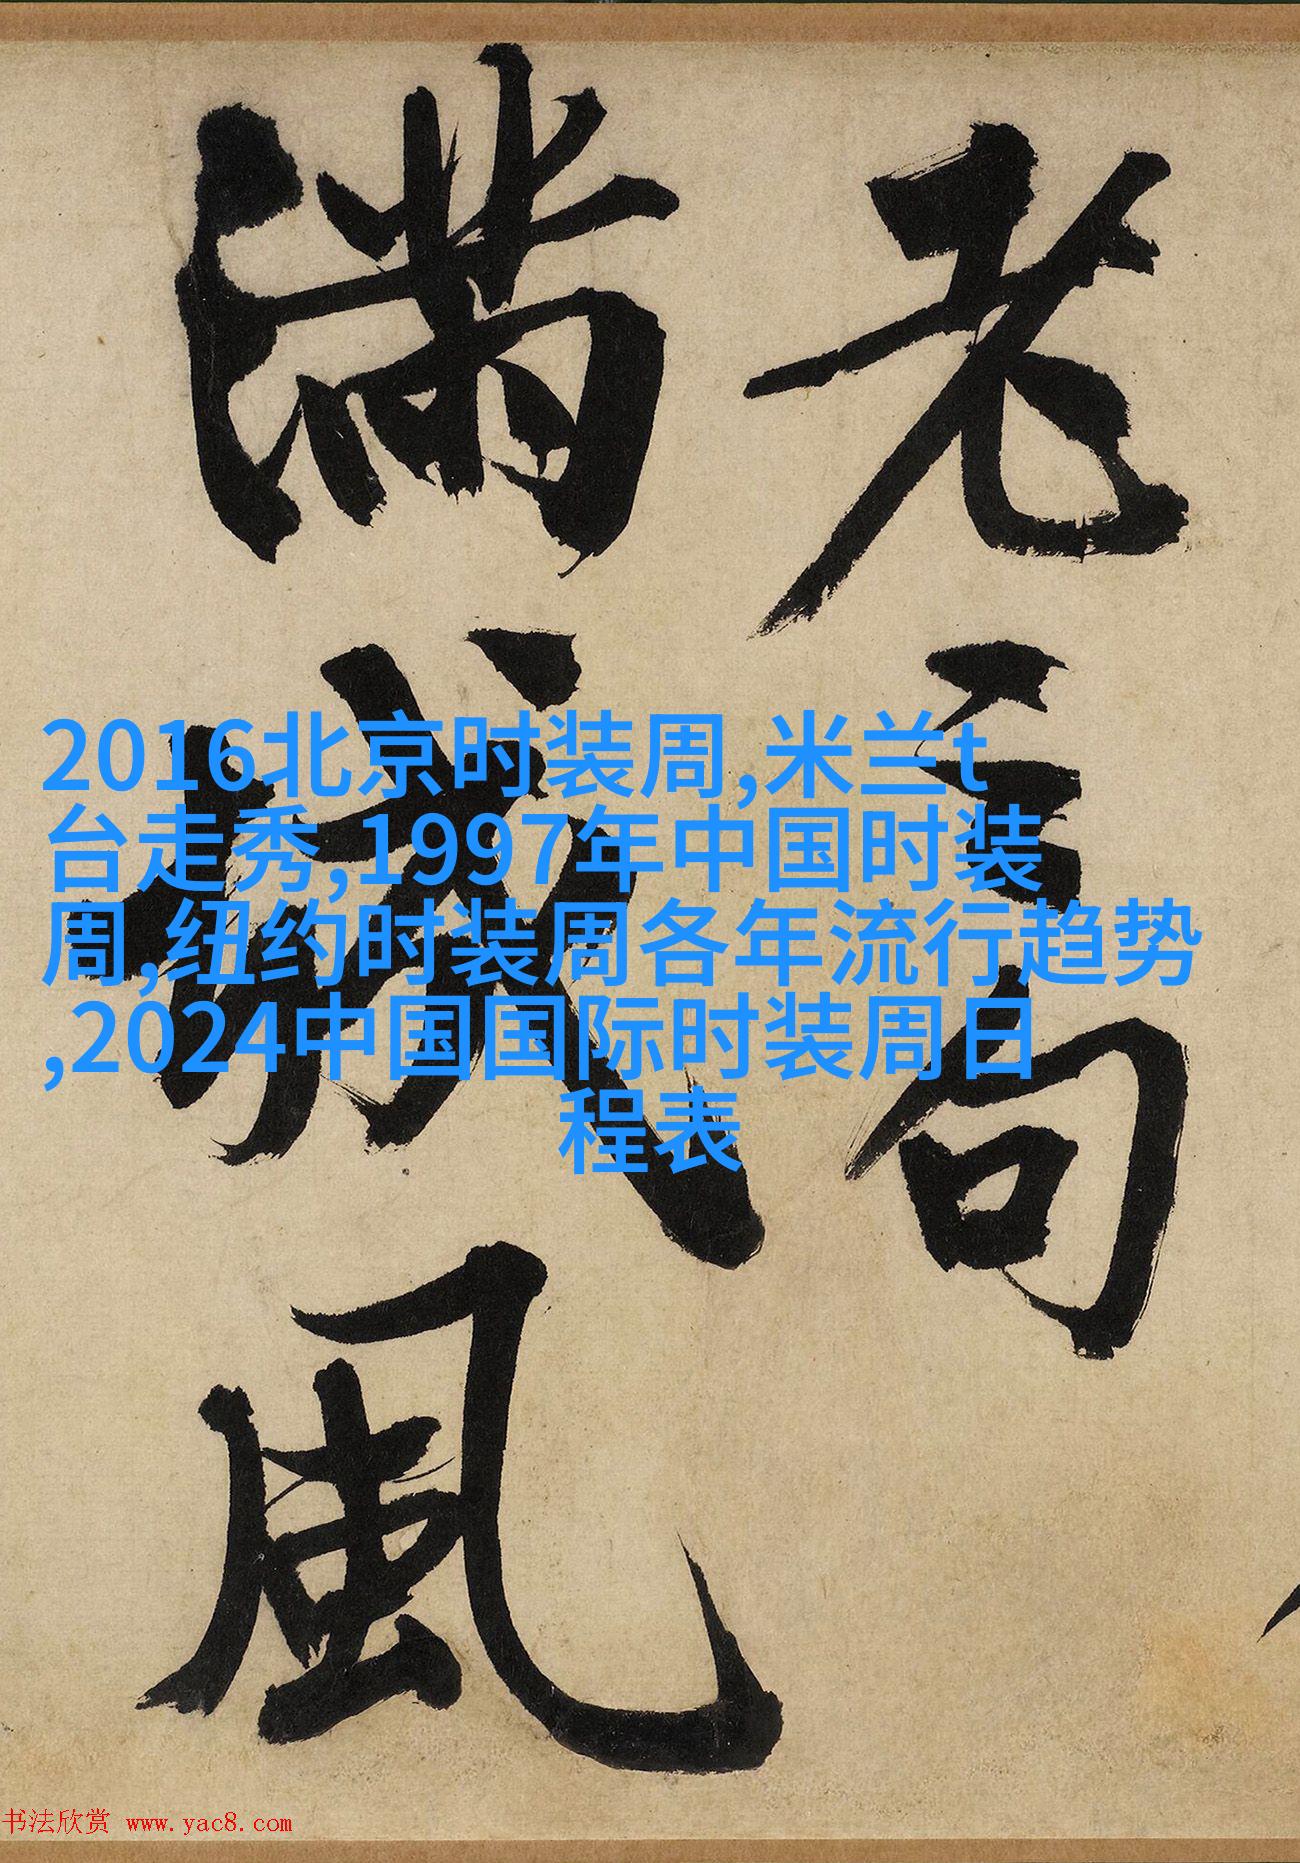 老三句
滿城風
2016北京时装周,米兰t
台走秀,1997年中国时装
周,纽约时装周各年流行趋势
,2024中国国际时装周日
程表
书法欣赏 www.yac8.com